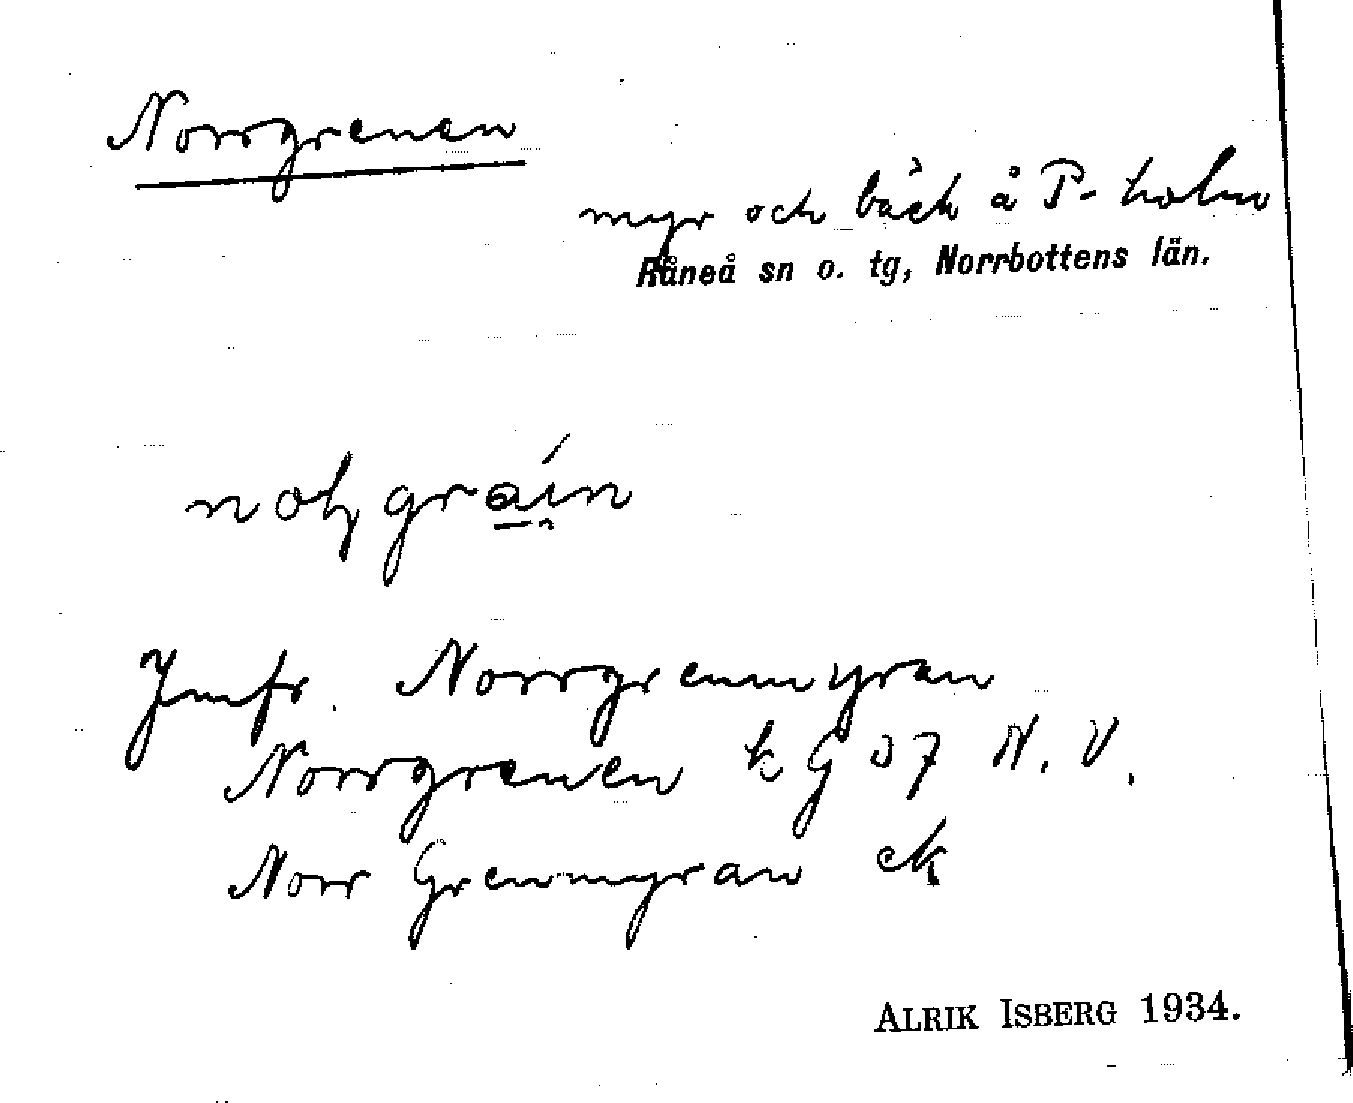 Norrgrenen
myr och bäck å P-holm
Råneå sn o. tg, Norrbottens län.
Jmfr. Norrgrenmyran
Norrgrenen k G 37 N. V.
Norr Grenmyran ek
ALRIK ISBERG 1934.